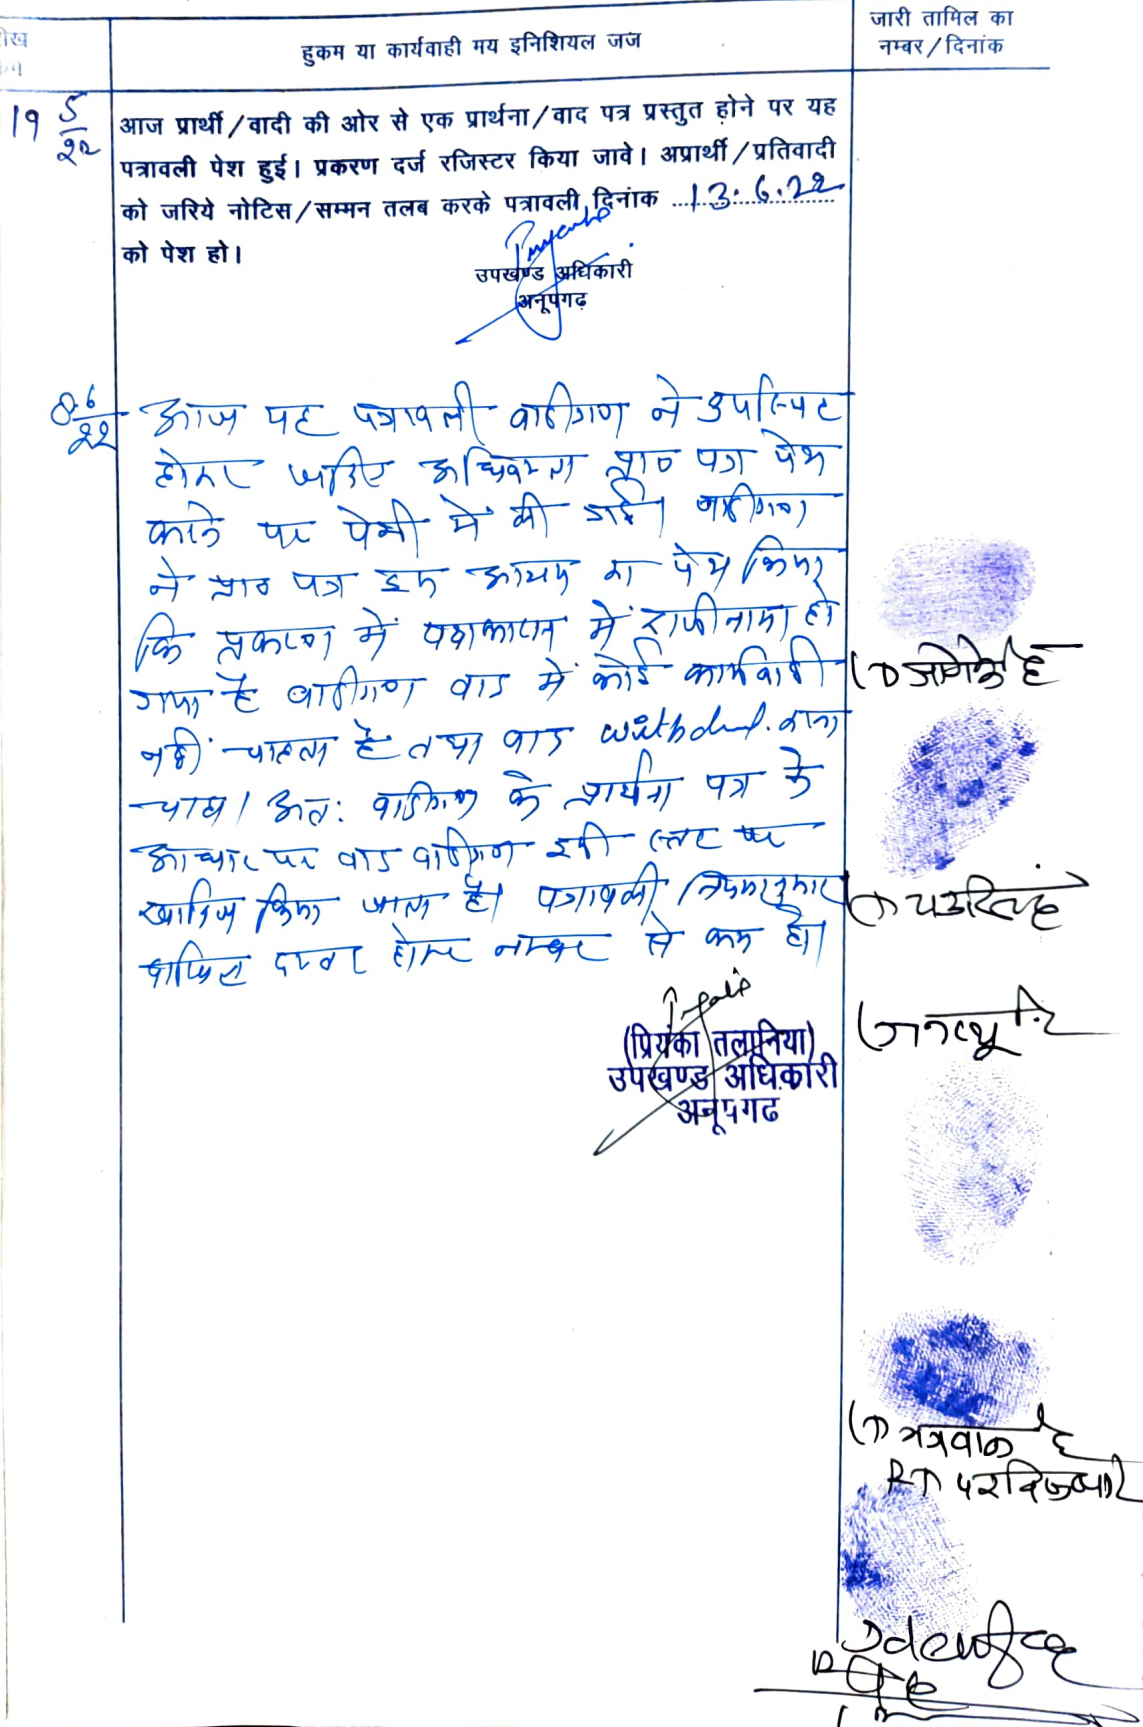 हुकम या कार्यवाही मय इनिशियल जज
जारी तामिल का
नम्बर/दिनांक
19 5/22
आज प्रार्थी/वादी की ओर से एक प्रार्थना/वाद पत्र प्रस्तुत होने पर यह
पत्रावली पेश हुई। प्रकरण दर्ज रजिस्टर किया जावे। अप्रार्थी/प्रतिवादी
को जरिये नोटिस/सम्मन तलब करके पत्रावली दिनांक 13.6.22
को पेश हो।
उपखण्ड अधिकारी
अनूपगढ़
8.6/22
आज यह पत्रावली वादीगण ने उपस्थित
होकर जरिए अधिवक्ता प्रा० पत्र पेश
करने पर पेशी में ली गई। वादीगण
ने प्रा० पत्र इस आशय का पेश किया
कि प्रकरण में पक्षकारान में राजीनामा हो
गया है वादीगण वाद में कोई कार्यवाही
नहीं चाहता है तथा वाद करना
चाहा। अतः वादीगण के प्रार्थना पत्र के
आधार पर वाद वादीगण इसी स्तर पर
खारिज किया जाता है। पत्रावली नियमानुसार
दाखिल दफ्तर होकर नम्बर से कम हो।
(प्रियंका तलानिया)
उपखण्ड अधिकारी
अनूपगढ